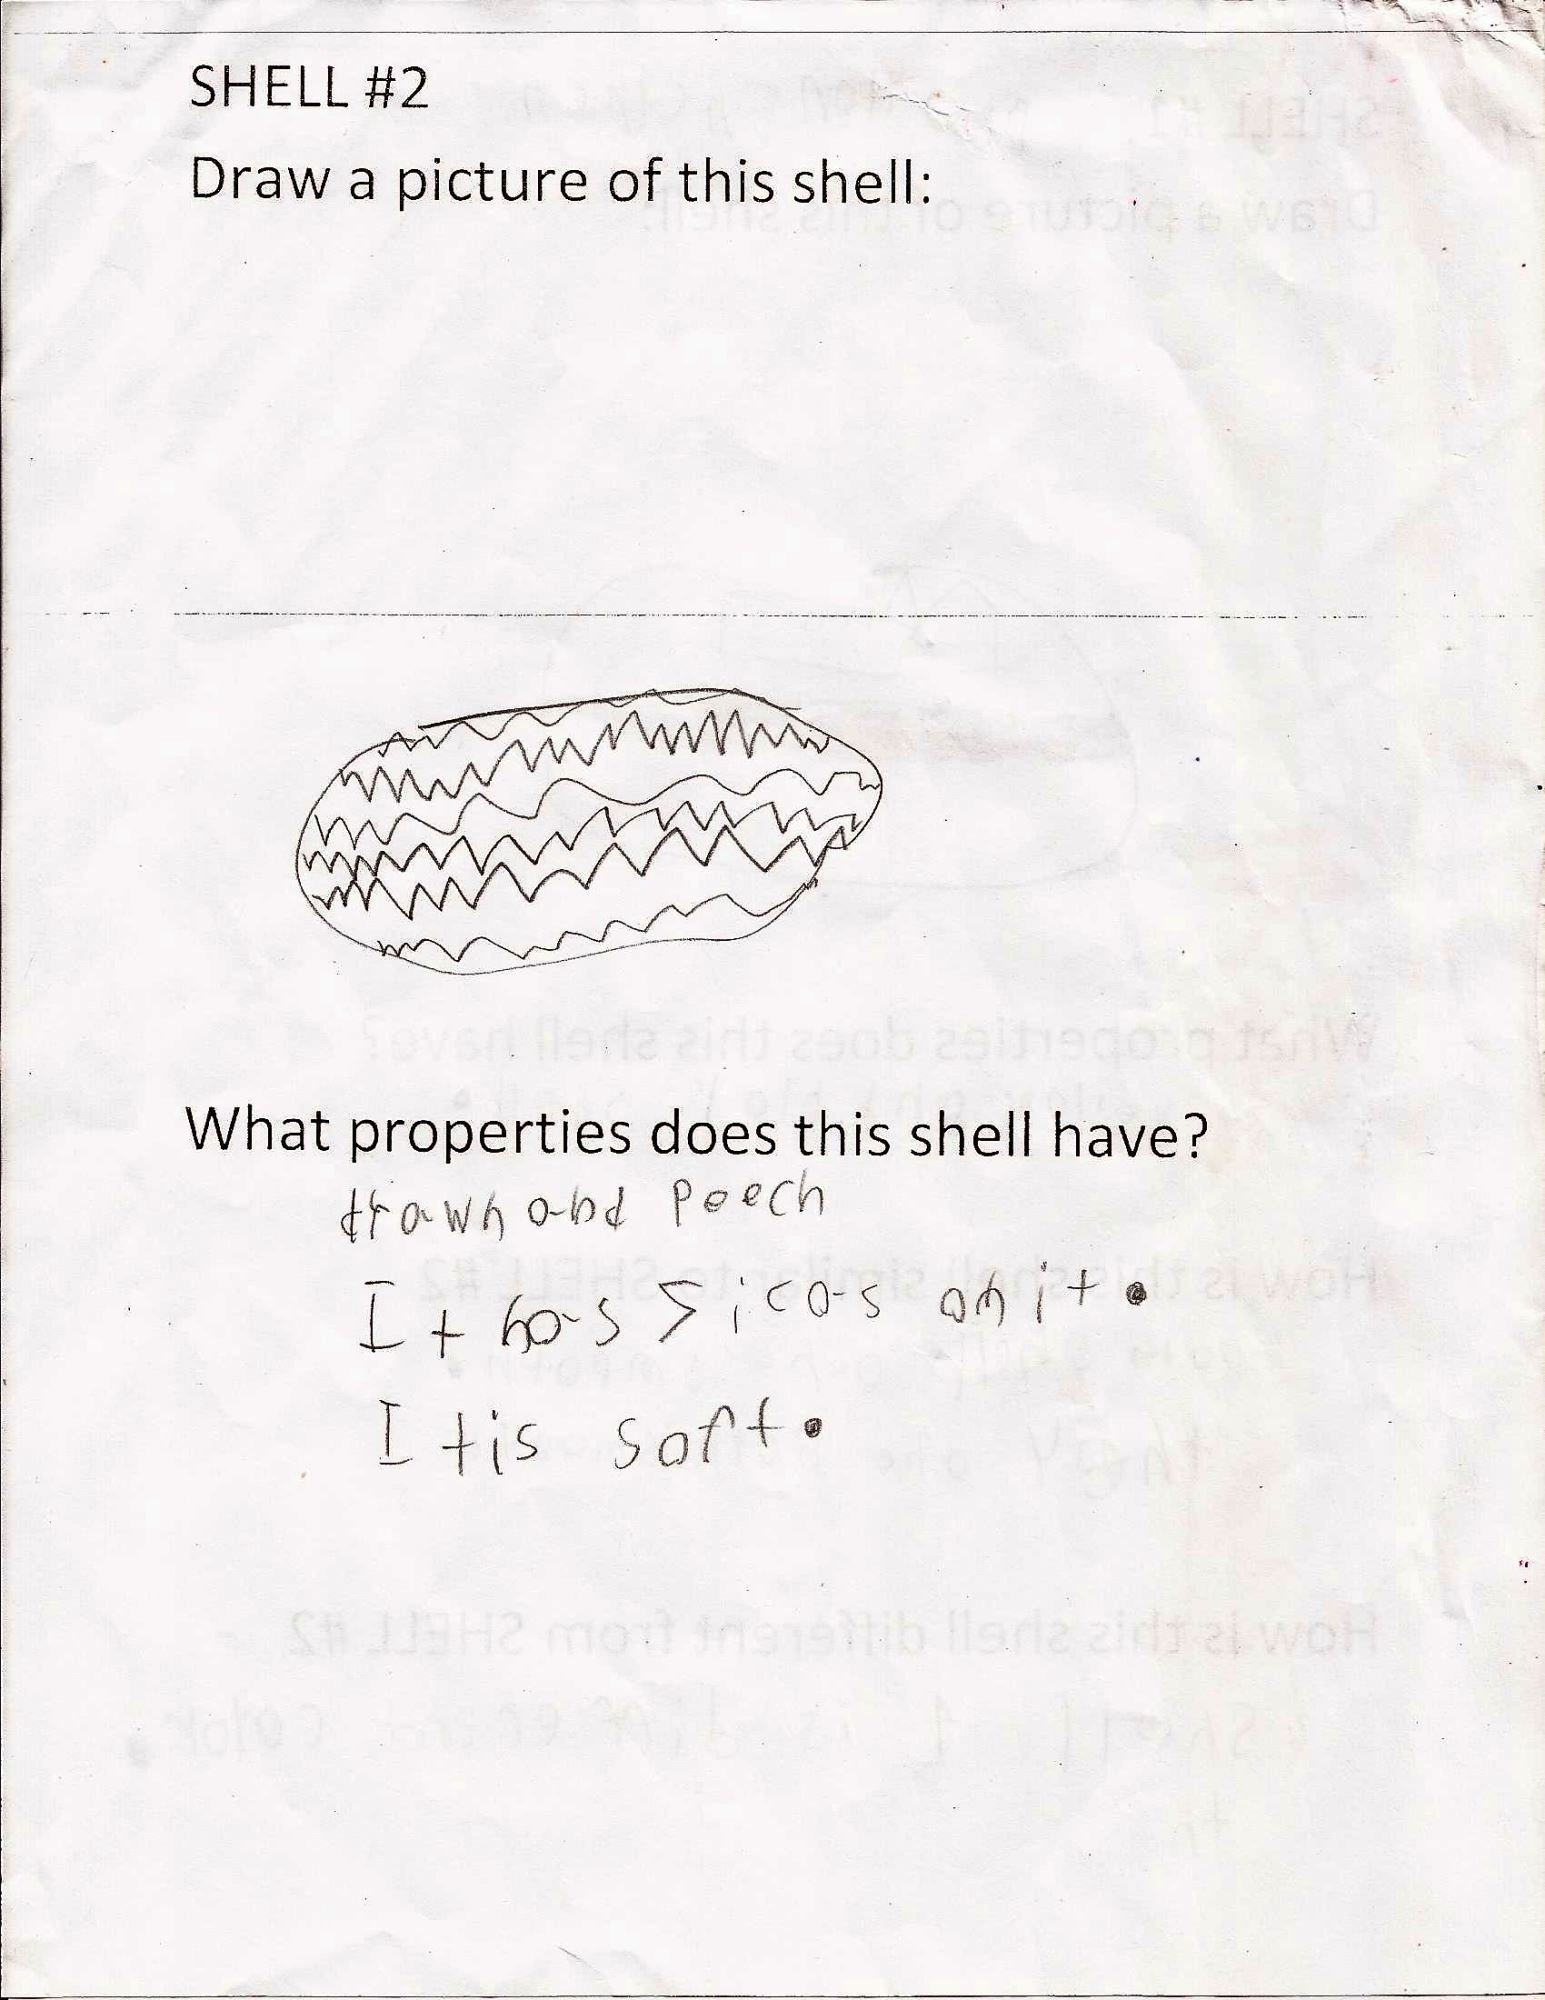 SHELL #2
Draw a picture of this shell:
What properties does this shell have?
and peech
It has Sicas on it.
It is soft.